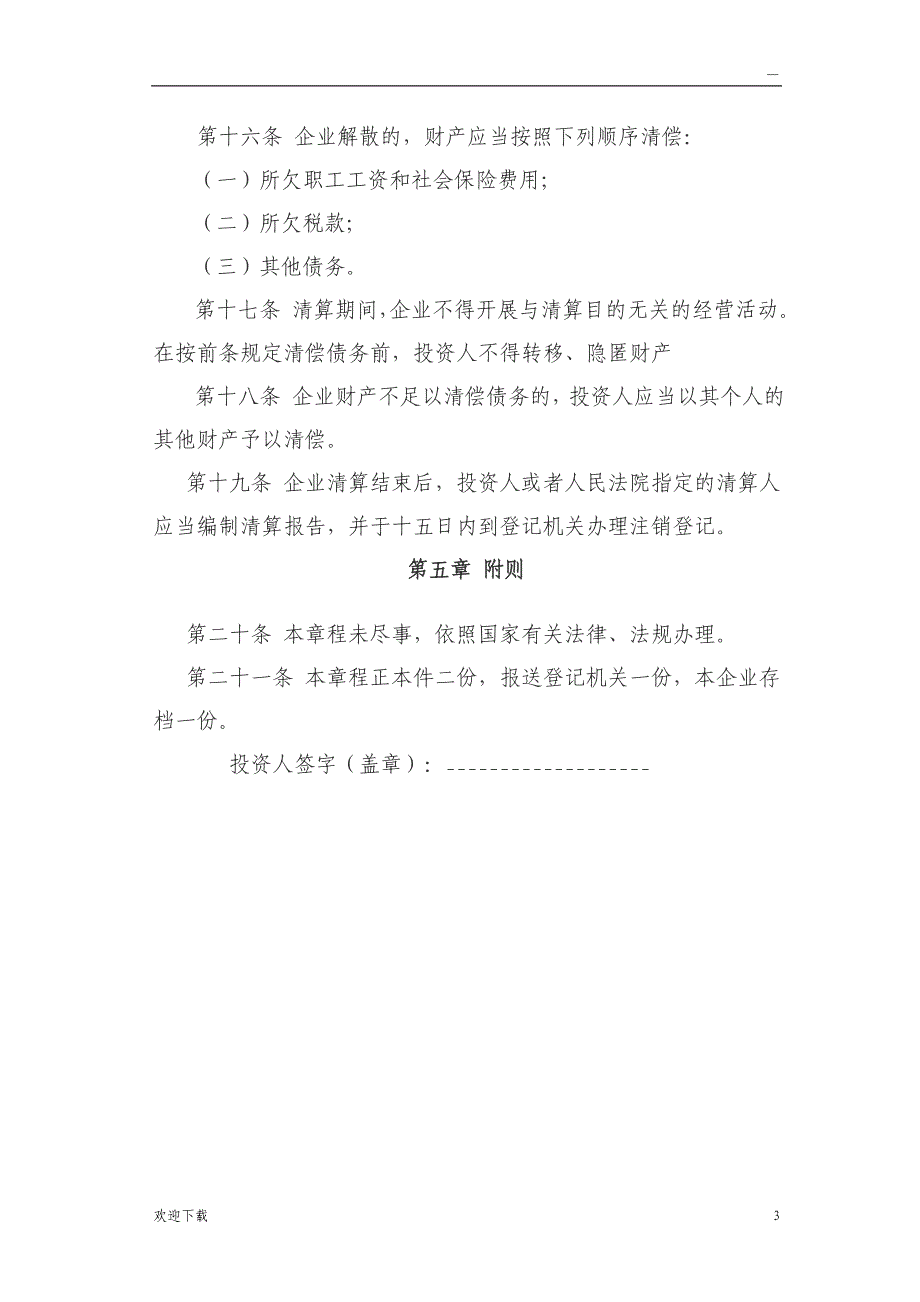 —
第十六条 企业解散的，财产应当按照下列顺序清偿：
（一）所欠职工工资和社会保险费用；
（二）所欠税款；
（三）其他债务。
第十七条 清算期间，企业不得开展与清算目的无关的经营活动。
在按前条规定清偿债务前，投资人不得转移、隐匿财产
第十八条 企业财产不足以清偿债务的，投资人应当以其个人的
其他财产予以清偿。
第十九条 企业清算结束后，投资人或者人民法院指定的清算人
应当编制清算报告，并于十五日内到登记机关办理注销登记。
第五章 附则
第二十条 本章程未尽事，依照国家有关法律、法规办理。
第二十一条 本章程正本件二份，报送登记机关一份，本企业存
档一份。
投资人签字（盖章）：___________________
欢迎下载 3